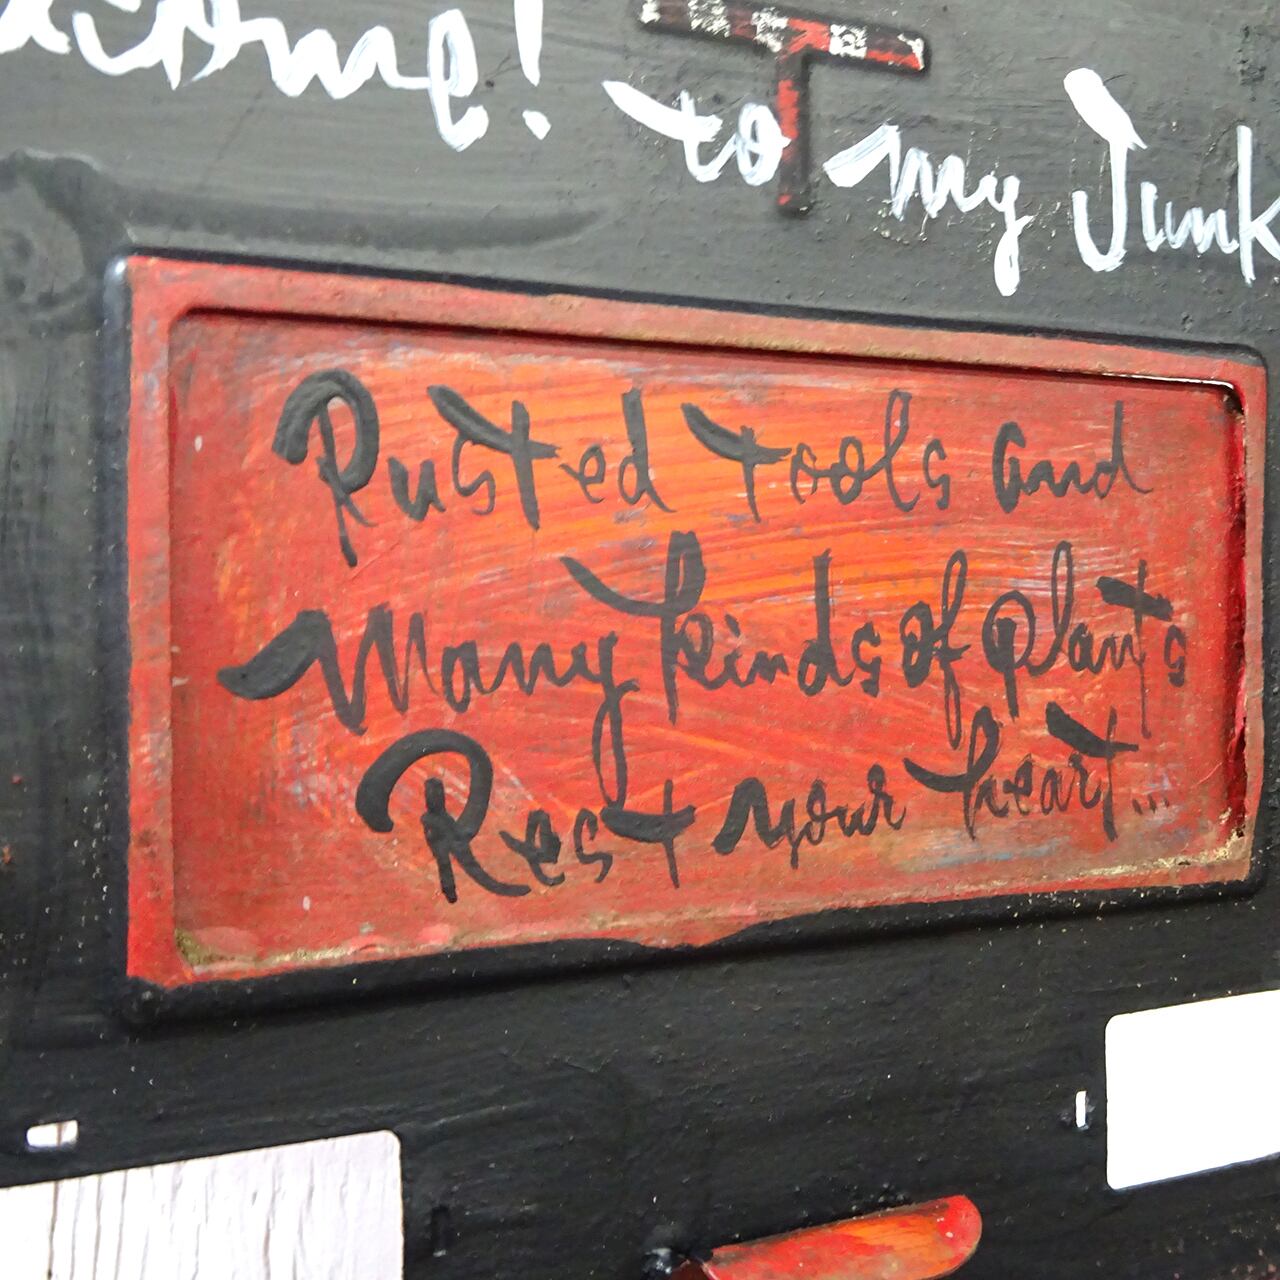 T
to my Junk
Rusted tools and
Many kinds of plants
Rest your heart...